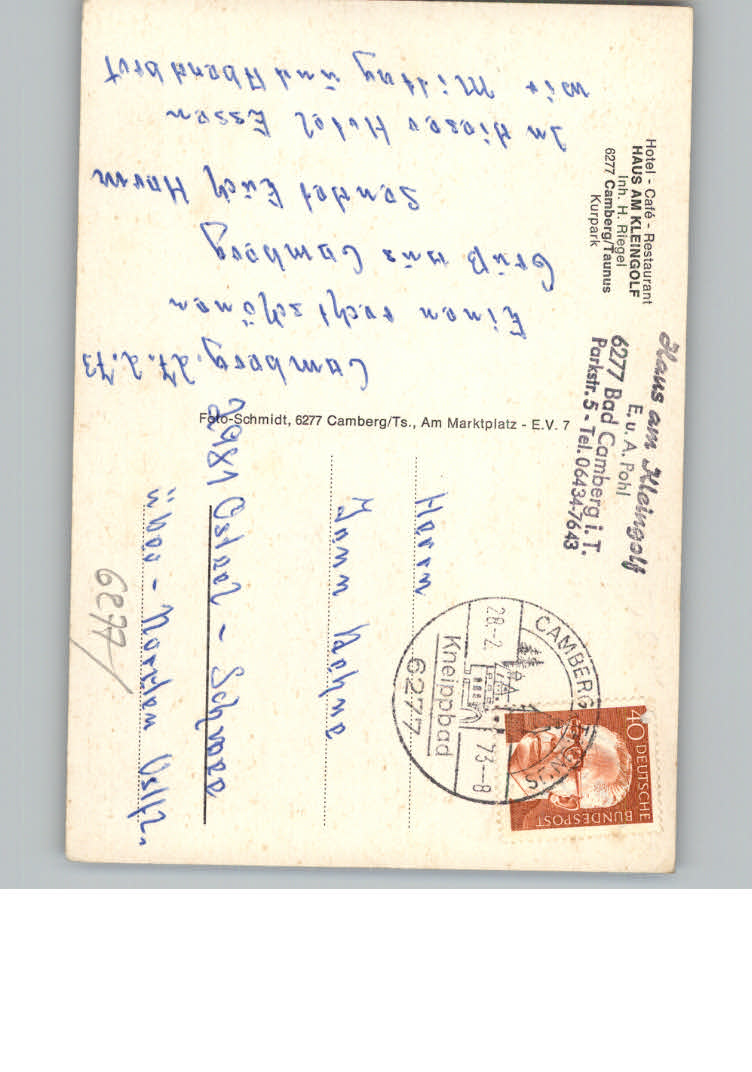 Hotel - Café - Restaurant
HAUS AM KLEINGOLF
Inh. H. Riegel
6277 Camberg/Taunus
Kurpark
Haus am Kleingolf
E. u. A. Pohl
6277 Bad Camberg i. T.
Parkstr. 5 - Tel. 06434-7643
Camberg, 27.2.73
Einen recht schönen
Grüß aus Camberg
Sendet Euch Harm
In dieser Hotel Essen
wir Mittag und Abendbrot
Foto-Schmidt, 6277 Camberg/Ts., Am Marktplatz - E.V. 7
Herrn
Jann
2981 Osteel - Schwee
über - Norden Ostf.
6277
CAMBERG
TAUNUS
28.-2. 73--8
Kneippbad
6277
40 DEUTSCHE
BUNDESPOST